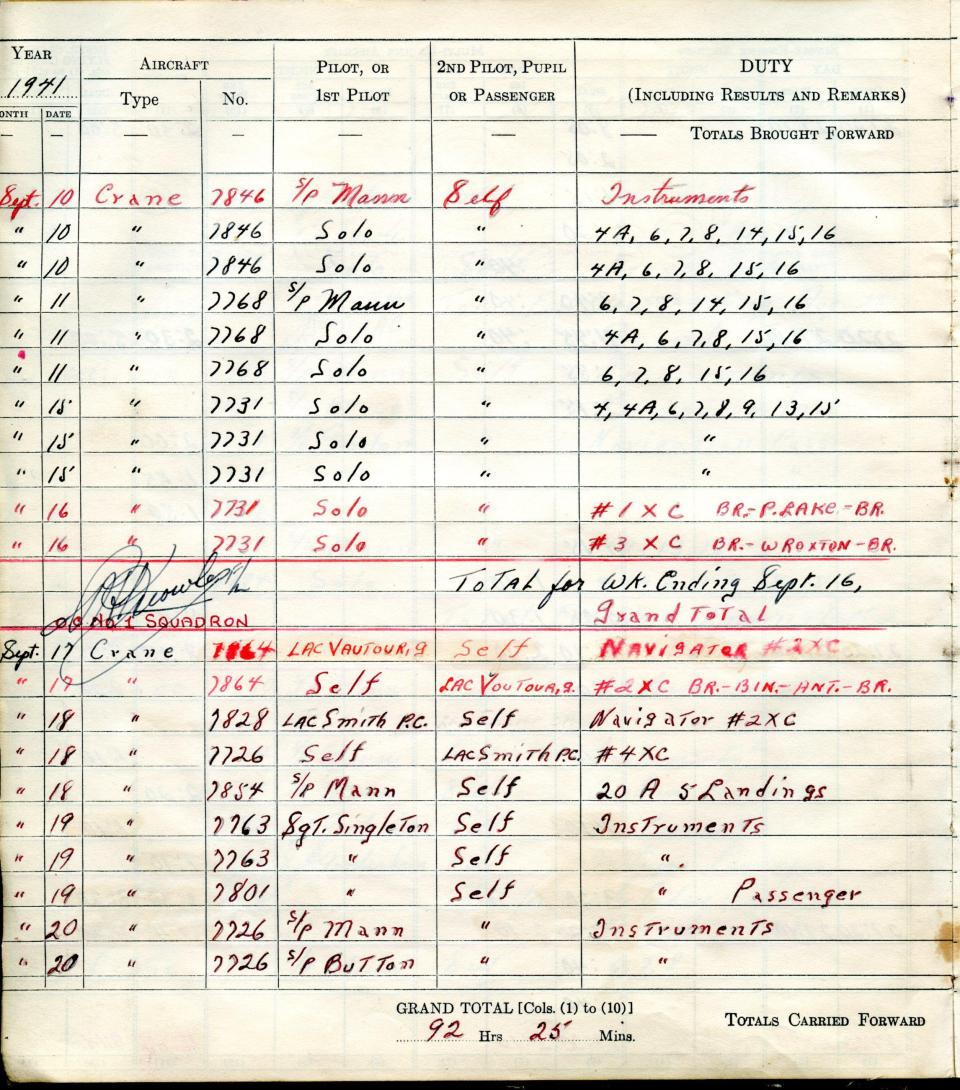 YEAR AIRCRAFT PILOT, OR 2ND PILOT, PUPIL DUTY
1941 Type No. 1ST PILOT OR PASSENGER (INCLUDING RESULTS AND REMARKS)
ONTH DATE
— — — — — — TOTALS BROUGHT FORWARD
Sept. 10 Crane 7846 S/P Mann Self Instruments
" 10 " 7846 Solo " 4A, 6, 7, 8, 14, 15, 16
" 10 " 7846 Solo " 4A, 6, 7, 8, 15, 16
" 11 " 7768 S/P Mann " 6, 7, 8, 14, 15, 16
" 11 " 7768 Solo " 4A, 6, 7, 8, 15, 16
" 11 " 7768 Solo " 6, 7, 8, 15, 16
" 15 " 7731 Solo " 4, 4A, 6, 7, 8, 9, 13, 15
" 15 " 7731 Solo " "
" 15 " 7731 Solo " "
" 16 " 7731 Solo " #1 X C BR.-P.LAKE.-BR.
" 16 " 7731 Solo " #3 X C BR.-WROXTON-BR.
TOTAL for WK. Ending Sept. 16,
Grand Total
OC No 1 SQUADRON
Sept. 17 Crane 7864 LAC VAUTOUR, g Self NAVIGATOR #2XC
" 17 " 7864 Self LAC VOUTOUR, g. #2XC BR.-BIN.-ANT.-BR.
" 18 " 7828 LAC Smith P.C. Self Navigator #2XC
" 18 " 7726 Self LAC Smith P.C. #4XC
" 18 " 7854 S/P Mann Self 20 A 5 Landings
" 19 " 7763 Sgt. Singleton Self Instruments
" 19 " 7763 " Self ".
" 19 " 7801 " Self " Passenger
" 20 " 7726 S/P Mann " Instruments
" 20 " 7726 S/P Button " "
GRAND TOTAL [Cols. (1) to (10)]
92 Hrs 25 Mins. TOTALS CARRIED FORWARD